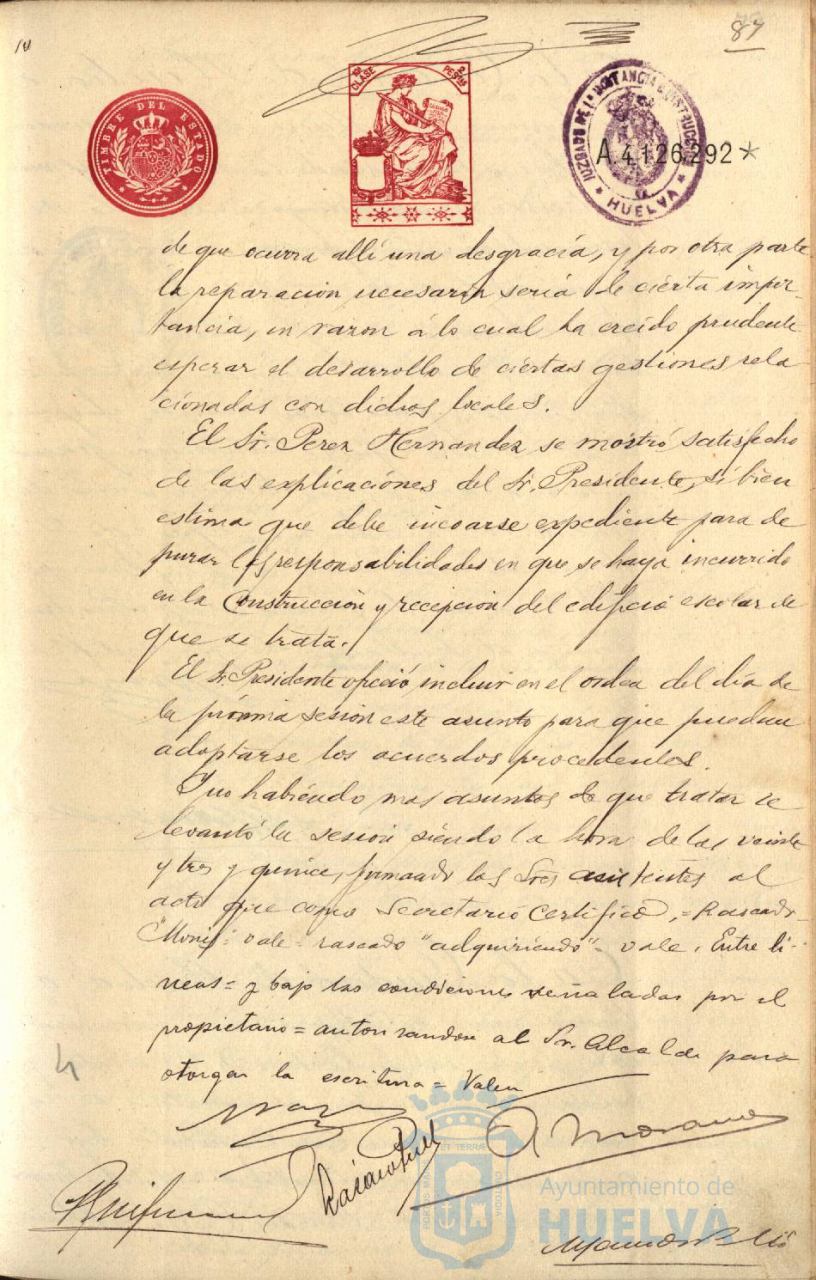 87
TIMBRE DEL ESTADO
10ª CLASE
2 PESETAS
JUZGADO DE 1ª INSTANCIA INSTRUCCION
* HUELVA *
A4126,292*
de que ocurra allí una desgracia, y por otra parte
la reparación necesaria seria de cierta impor-
tancia, en razon á lo cual ha creido prudente
esperar el desarrollo de ciertas gestiones rela
cionadas con dichos locales.
El Sr. Perez Hernandez se mostró satisfecho
de las explicaciones del Sr. Presidente, si bien
estima que debe incoarse expediente para de
purar las responsabilidades en que se haya incurrido
en la construcción y recepcion del edificio escolar de
que se trata.
El Sr. Presidente ofreció incluir en el orden del día de
la próxima sesion este asunto para que puedan
adoptarse los acuerdos procedentes.
Y no habiendo mas asuntos de que tratar se
levantó la sesion siendo la hora de las veinte
y tres y quince, firmando los Sres asistentes al
acto que como Secretario Certifico, = Rascado
vale = rascado "adquiriendo" = vale. Entre li-
neas = y bajo las condiciones señaladas por el
propietario = autorizandose al Sr. Alcalde para
otorgar la escritura = Valen
Ayuntamiento de
HUELVA